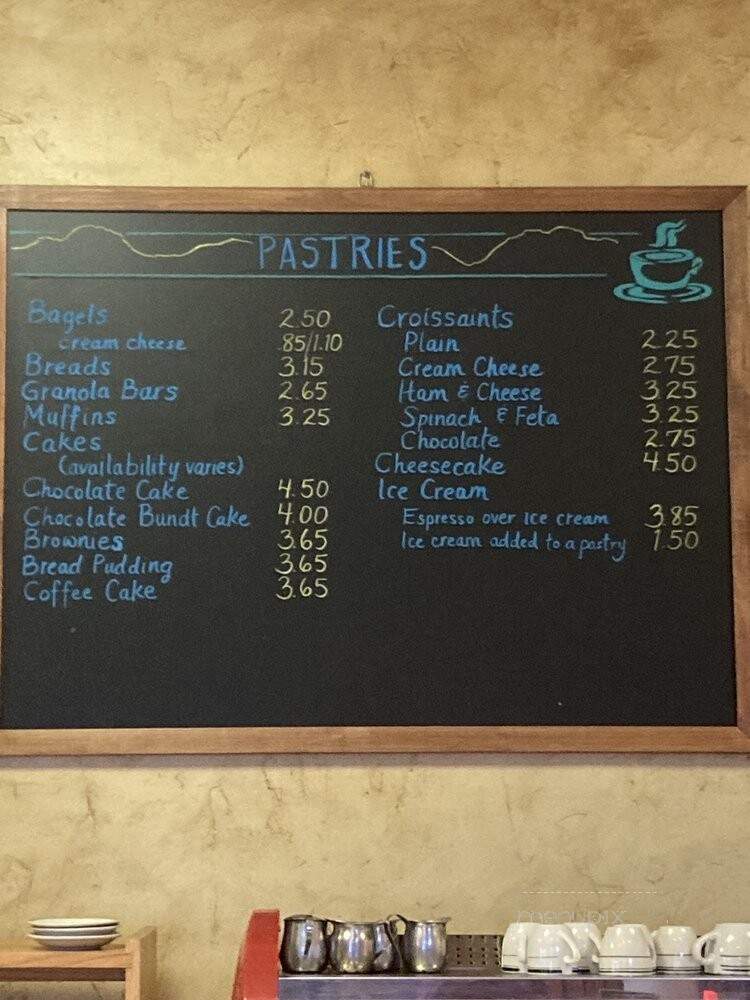 PASTRIES
Bagels 2.50
cream cheese .85/1.10
Breads 3.15
Granola Bars 2.65
Muffins 3.25
Cakes
(availability varies)
Chocolate Cake 4.50
Chocolate Bundt Cake 4.00
Brownies 3.65
Bread Pudding 3.65
Coffee Cake 3.65
Croissaints
Plain 2.25
Cream Cheese 2.75
Ham & Cheese 3.25
Spinach & Feta 3.25
Chocolate 2.75
Cheesecake 4.50
Ice Cream
Espresso over ice cream 3.85
Ice cream added to a pastry 1.50